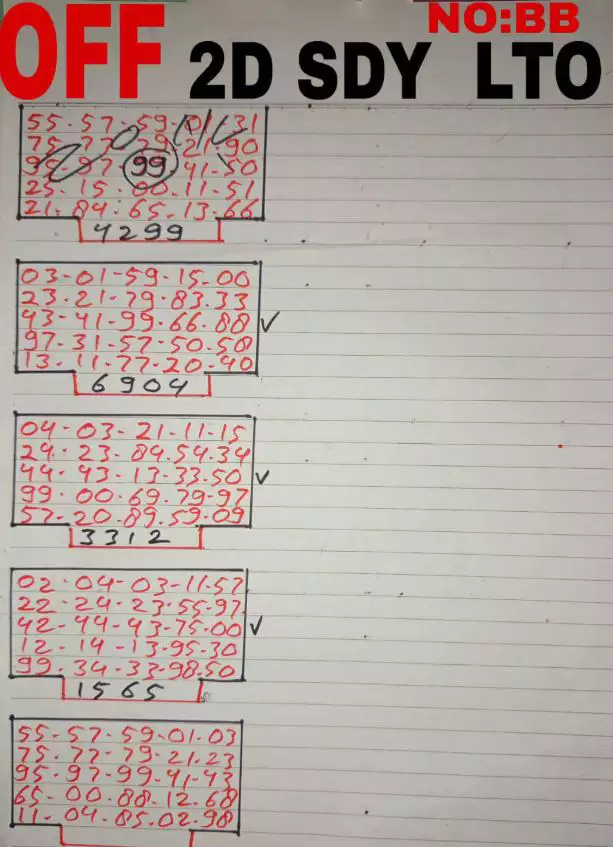 NO:BB
OFF 2D SDY LTO
55-57-59-01-31
75-77-79-21-90
95-97-99-41-50
25-15-00-11-51
21-84-65-13-66
4299
03-01-59-15-00
23-21-79-83-33
43-41-99-66-88
97-31-57-50-58
13-11-77-20-40
6904
04-03-21-11-15
24-23-84-54-34
44-43-13-33-50
99-00-69-79-97
57-20-89-59-09
3312
02-04-03-11-57
22-24-23-55-97
42-44-43-75-00
12-14-13-95-30
99-34-33-98-50
1565
55-57-59-01-03
75-77-79-21-23
95-97-99-41-43
65-00-88-12-68
11-04-85-02-98